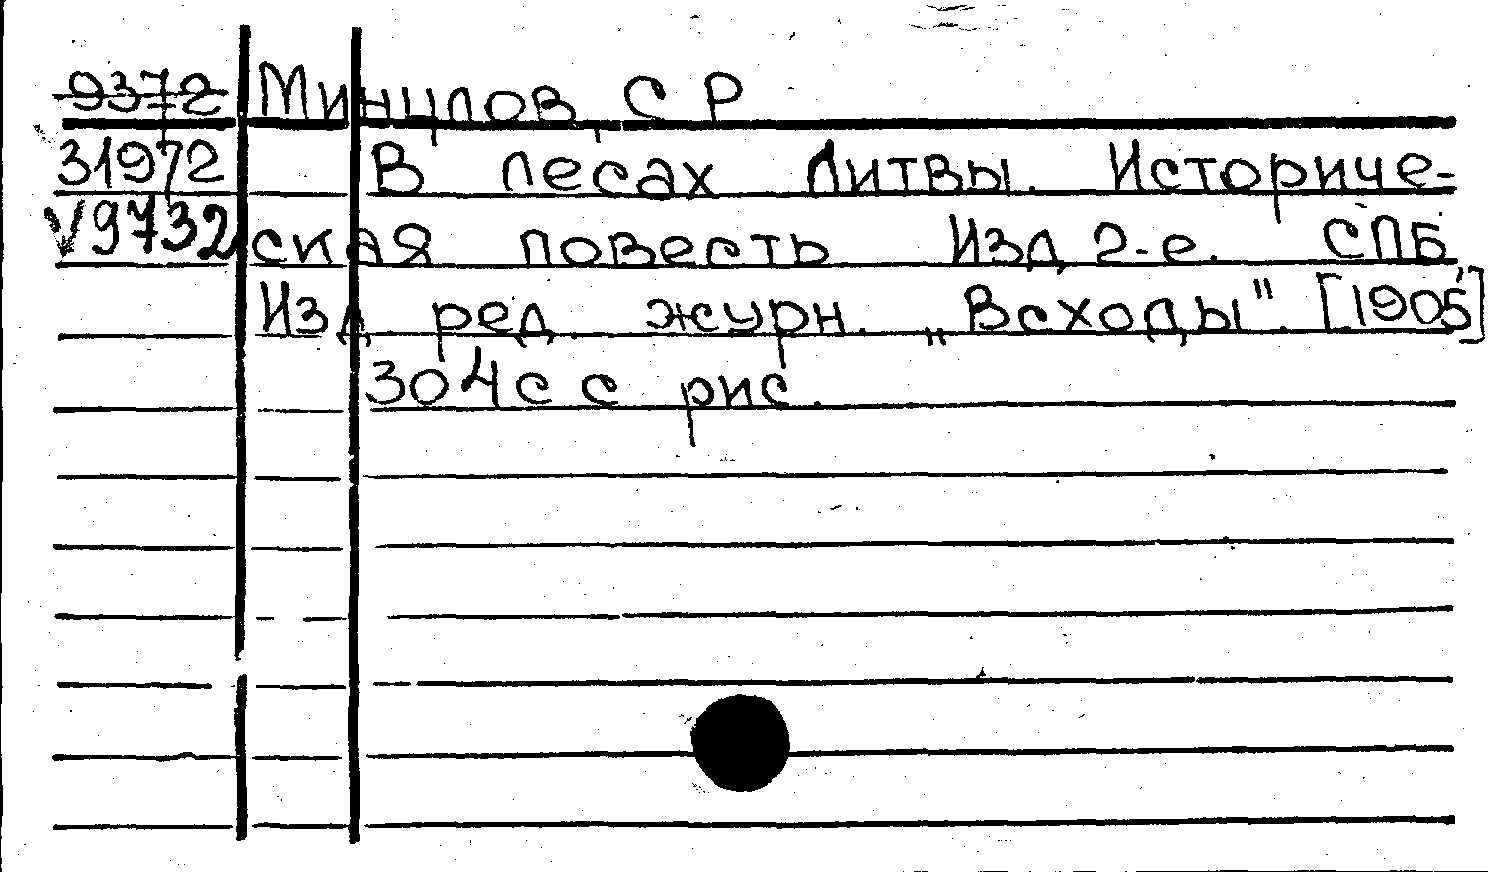 9372 Минцлов, С Р
31972 В лесах Литвы. Историче-
V9732 ская повесть Изд 2-е. СПБ,
Изд ред журн. „Всходы". [1905]
304 с с рис.